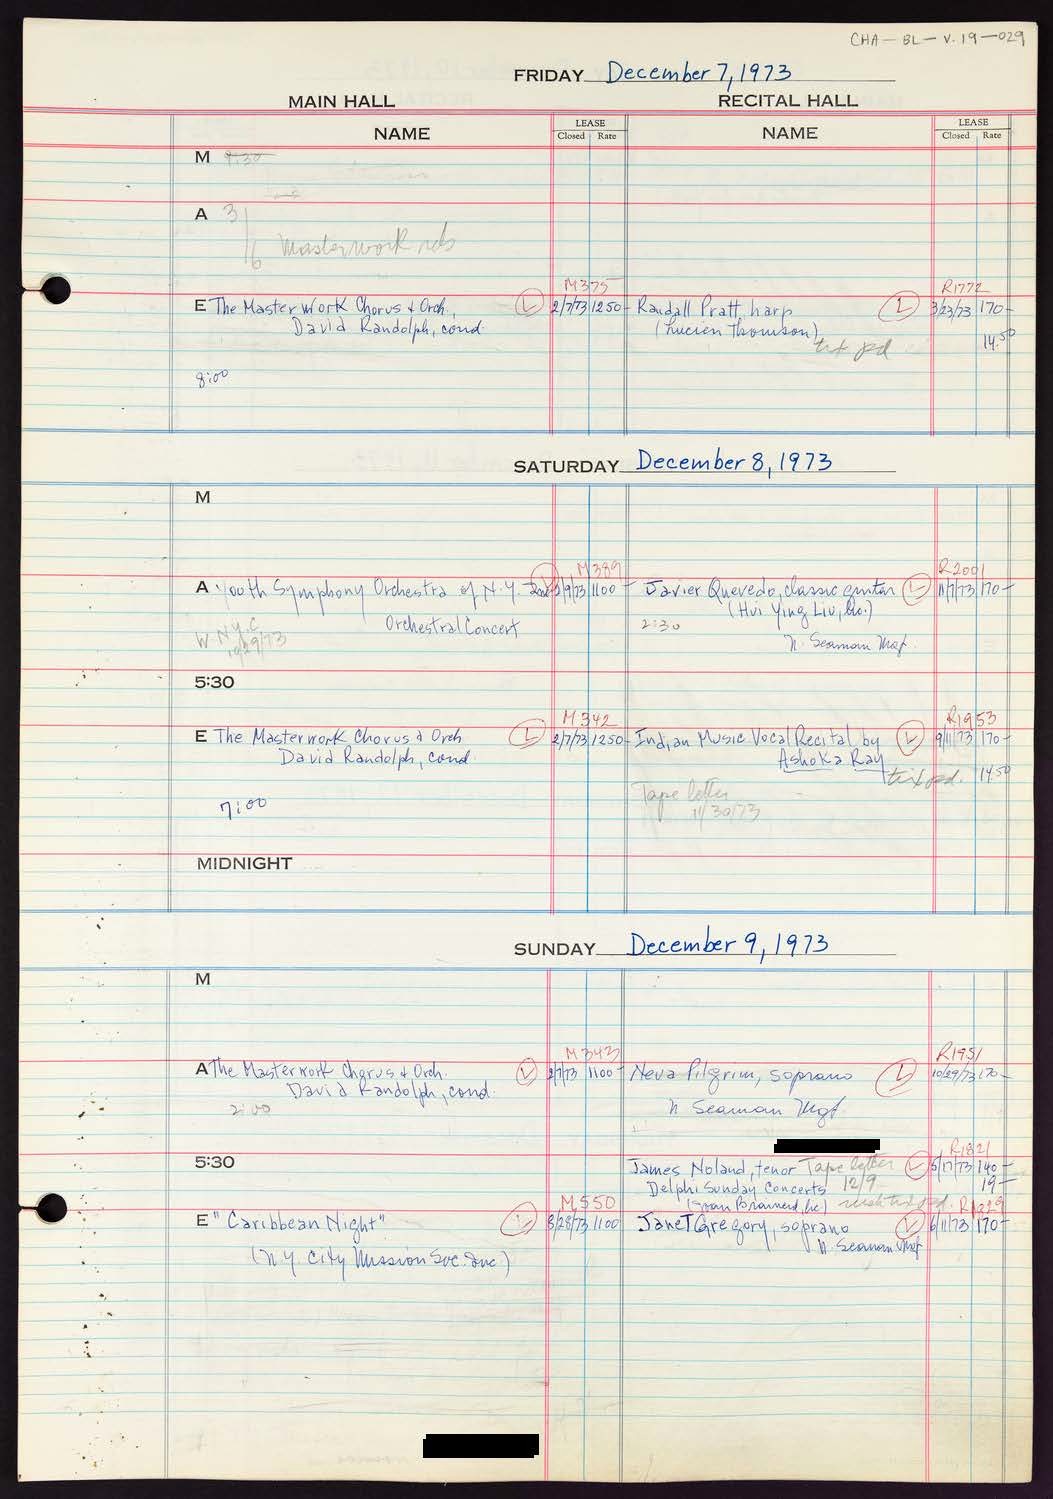 CHA-BL-V.19-029
FRIDAY December 7, 1973
MAIN HALL RECITAL HALL
NAME LEASE Closed Rate NAME LEASE Closed Rate
M 9:30
A 3/6 Masterwork reh
M375 R1772
E The Masterwork Chorus & Orch., L 2/7/73 1250- Randall Pratt, harp L 3/23/73 170-
David Randolph, cond. (Lucien Thomson) tix pd 14.50
8:00
SATURDAY December 8, 1973
M
M389 R2001
A Youth Symphony Orchestra of N.Y. 2nd L 2/9/73 1100- Javier Quevedo, classic guitar L 11/7/73 170-
Orchestral Concert (Hui Ying Liu,)
WNYC 2:30
10/29/73 N. Seaman Mgt.
5:30
M342 R1953
E The Masterwork Chorus & Orch. L 2/7/73 1250- Indian Music Vocal Recital by L 9/11/73 170-
David Randolph, cond. Ashoka Ray tix pd. 14.50
7:00 Tape letter
11/30/73
MIDNIGHT
SUNDAY December 9, 1973
M
M343 R1951
A The Masterwork Chorus & Orch. L 2/7/73 1100- Neva Pilgrim, soprano L 10/29/73 170-
David Randolph, cond. N Seaman Mgt.
2:00
R1821
5:30 James Noland, tenor Tape letter L 5/17/73 140-
Delphi Sunday Concerts 12/9 19-
M550 tix pd.
E "Caribbean Night" L 8/28/73 1100 Janet Gregory, soprano L 6/11/73 170-
(N.Y. City Mission Soc. Inc) N. Seaman Mgt